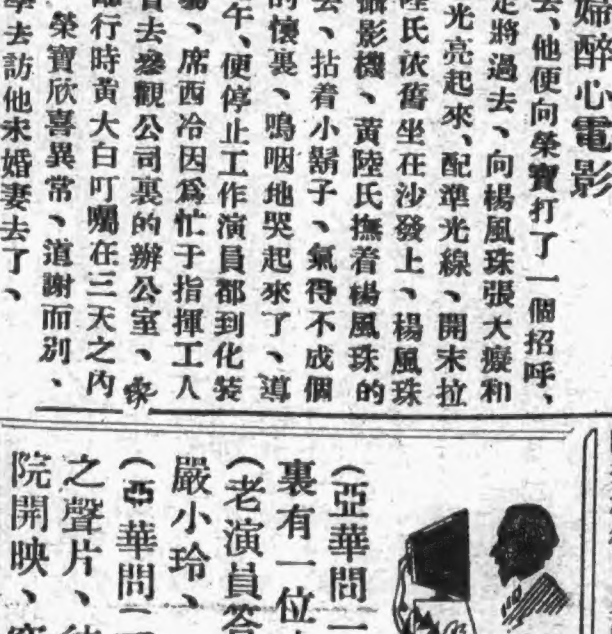 婦醉心電影
去、他便向榮寶打了一個招呼、
走將過去、向楊風珠張大癡和
光亮起來、配準光線、開末拉
陸氏依舊坐在沙發上、楊風珠
攝影機、黃陸氏撫着楊風珠的
去、拈着小鬍子、氣得不成個
的懷裏、嗚咽地哭起來了、導
午、便停止工作演員都到化裝
場、席西冷因爲忙于指揮工人
去參觀公司裏的辦公室、
臨行時黃大白叮囑在三天之內
榮寶欣喜異常、道謝而別、
去訪他未婚妻去了、
(亞華問
裏有一位
(老演員答
嚴小玲、
(亞華問
之聲片、
院開映、